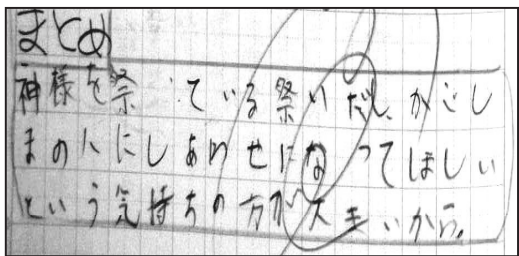 まとめ
神様を祭っている祭りだし、かごし
まの人にしあわせになってほしい
という気持ちの方が大きいから。